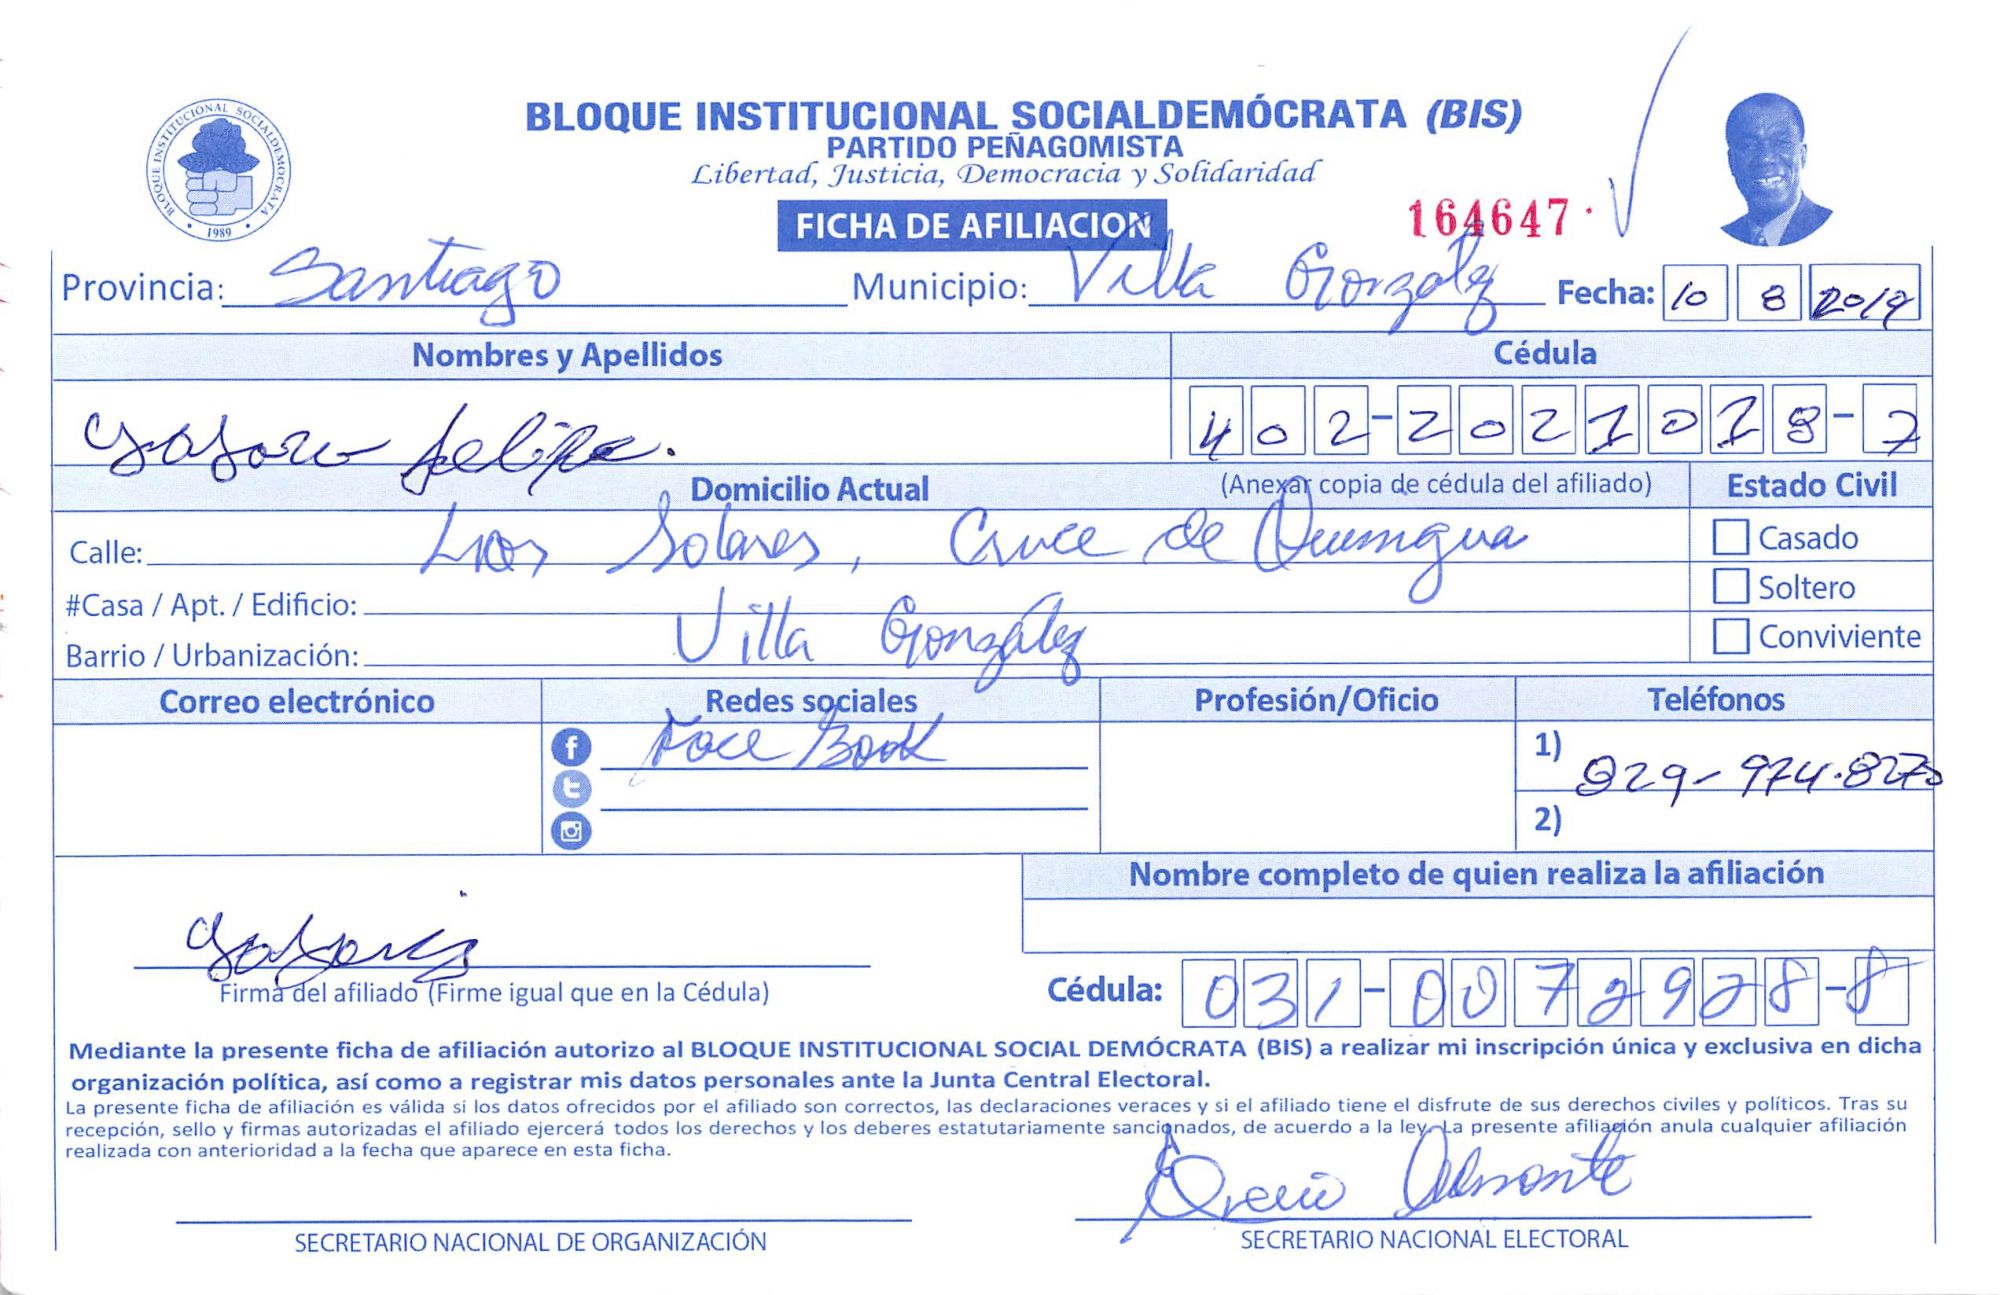 BLOQUE INSTITUCIONAL SOCIALDEMOCRATA
1989
BLOQUE INSTITUCIONAL SOCIALDEMÓCRATA (BIS)
PARTIDO PEÑAGOMISTA
Libertad, Justicia, Democracia y Solidaridad
FICHA DE AFILIACION
164647
Provincia: Santiago Municipio: Villa González Fecha: 10 8 2019
Nombres y Apellidos Cédula
felipe. 402-2021018-7
Domicilio Actual (Anexar copia de cédula del afiliado) Estado Civil
Calle: Los Solares, Cruce de Quinigua Casado
#Casa / Apt. / Edificio: Soltero
Barrio / Urbanización: Villa González Conviviente
Correo electrónico Redes sociales Profesión/Oficio Teléfonos
Face Book 1) 829-974-8270
2)
Nombre completo de quien realiza la afiliación
Firma del afiliado (Firme igual que en la Cédula) Cédula: 031-0072928-8
Mediante la presente ficha de afiliación autorizo al BLOQUE INSTITUCIONAL SOCIAL DEMÓCRATA (BIS) a realizar mi inscripción única y exclusiva en dicha
organización política, así como a registrar mis datos personales ante la Junta Central Electoral.
La presente ficha de afiliación es válida si los datos ofrecidos por el afiliado son correctos, las declaraciones veraces y si el afiliado tiene el disfrute de sus derechos civiles y políticos. Tras su
recepción, sello y firmas autorizadas el afiliado ejercerá todos los derechos y los deberes estatutariamente sancionados, de acuerdo a la ley. La presente afiliación anula cualquier afiliación
realizada con anterioridad a la fecha que aparece en esta ficha.
Almonte
SECRETARIO NACIONAL DE ORGANIZACIÓN SECRETARIO NACIONAL ELECTORAL